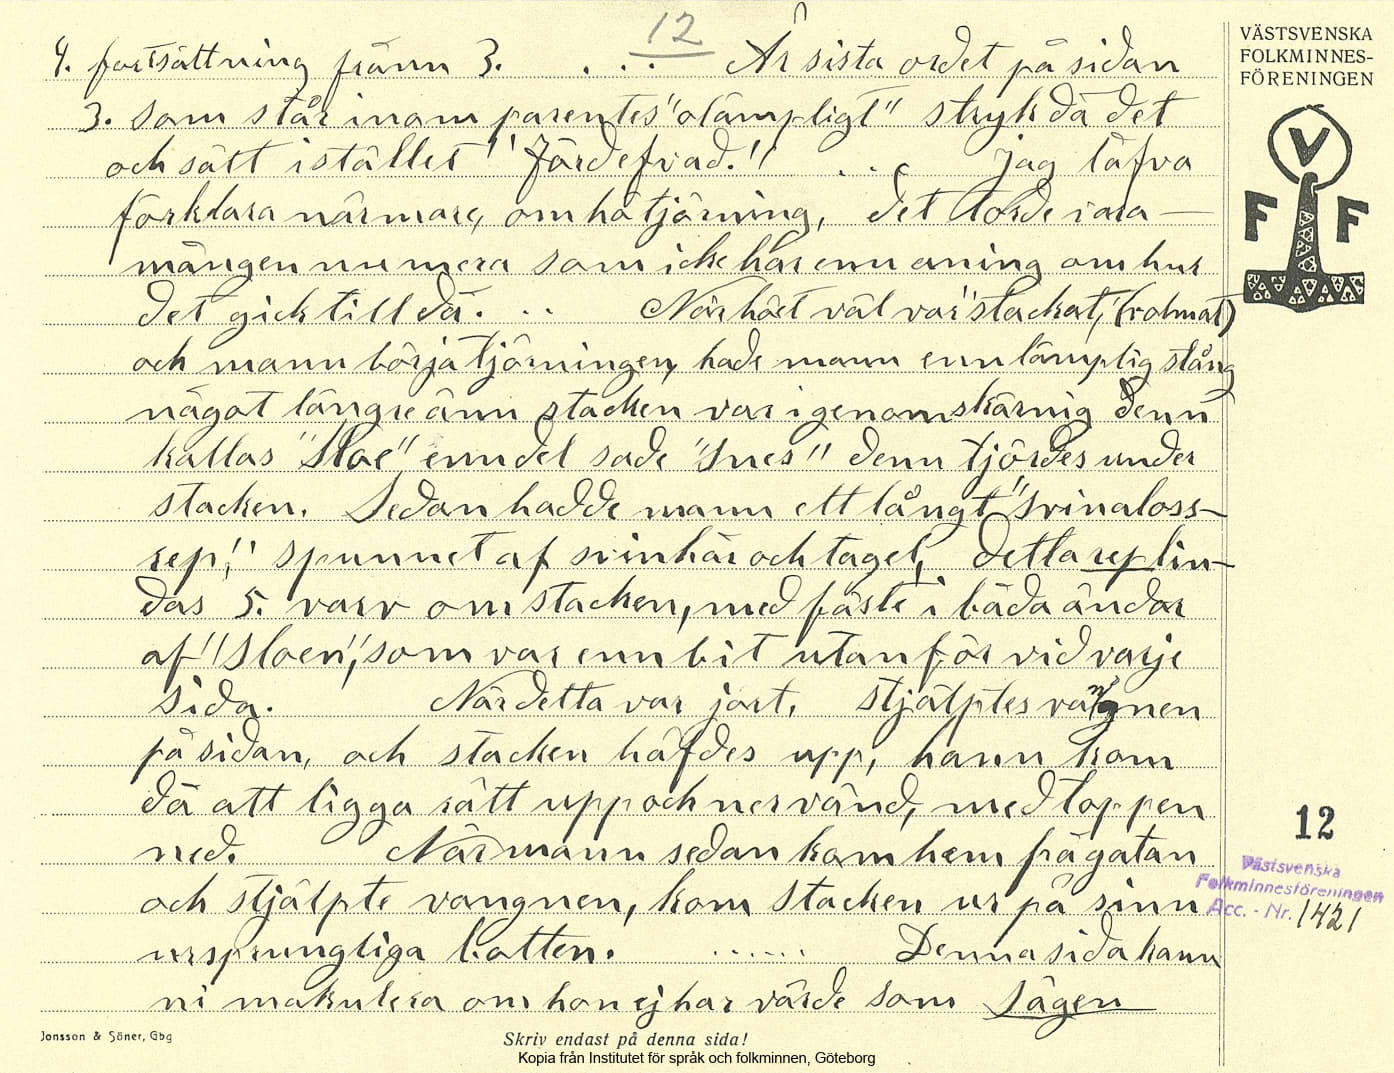 12
4. fortsättning frånn 3. . . . Är sista ordet på sidan
3. som står inom parentes "olämpligt" stryk då det
och sätt istället "Färdefvad." . . . jag läfva
förklara närmare, om hötjörning, det torde vara
mången numera som icke har enn aning om hur
det gick till då. . . När höet väl var "stackat," (volmat)
och mann börja tjörningen, hade mann enn lämplig stång
något längre änn stacken var i genomskärnig denn
kallas "Sloe", enn del sade "Snes" denn tjördes under
stacken. Sedan hadde mann ett långt "svinaloss-
rep," spunnet af svinhår och tagel, detta rep lin-
das 5. varv om stacken, med fäste i båda ändar
af "Sloen", som var enn bit utanför vid varje
sida. När detta var jort, stjälptes vangnen
på sidan, och stacken häfdes upp, hann kom
då att ligga rätt upp och nervänd, med toppen
ned. När mann sedan kom hem på gatan
och stjälpte vangnen, kom stacken ur på sinn
ursprungliga botten. . . . . . Denna sida kann
ni makulera om hon ej har värde som Sägen
VÄSTSVENSKA
FOLKMINNES-
FÖRENINGEN
V
F F
12
Västsvenska
Folkminnesföreningen
Acc. - Nr. 1421
Jonsson & Söner, Gbg
Skriv endast på denna sida!
Kopia från Institutet för språk och folkminnen, Göteborg